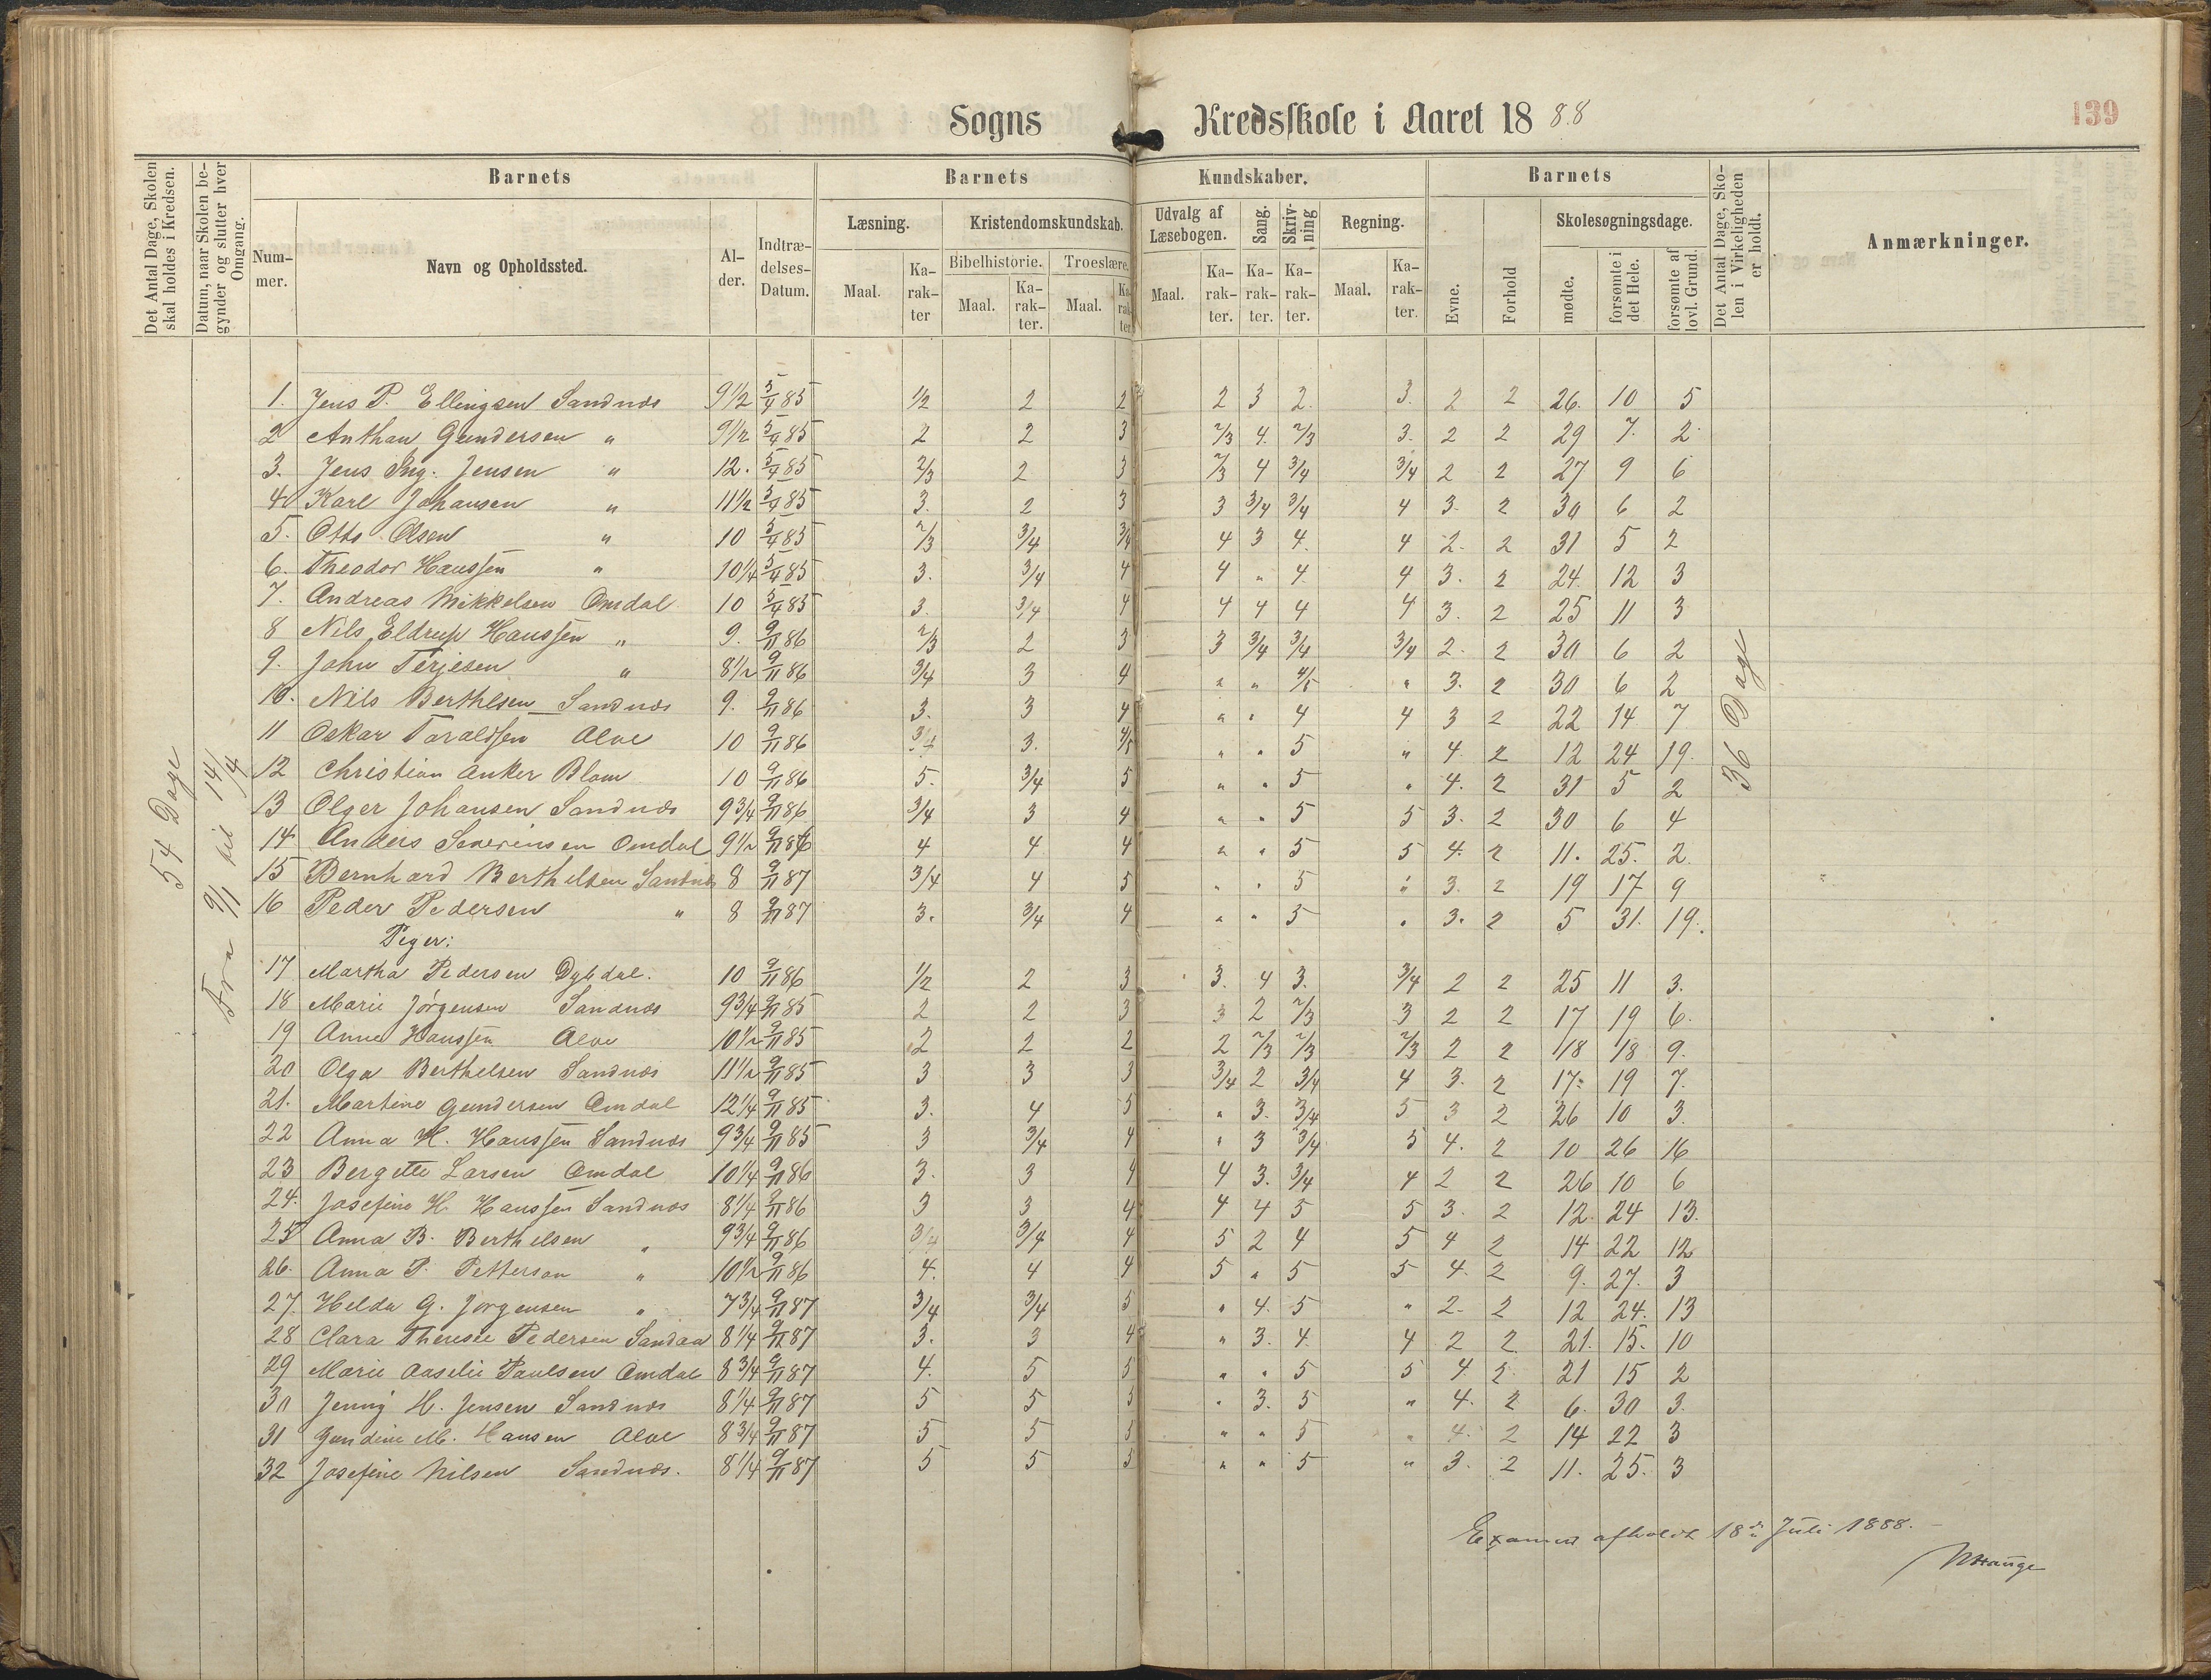 Sogns Kredsskole i Aaret 1888
139
Det Antal Dage, Skolen skal holdes i Kredsen.
Datum, naar Skolen begynder og slutter hver Omgang.
Barnets
Barnets Kundskaber.
Barnets
Det Antal Dage, Skolen i Virkeligheden er holdt.
Anmærkninger.
Nummer.
Navn og Opholdssted.
Alder.
Indtrædelses-Datum.
Læsning.
Kristendomskundskab.
Udvalg af Læsebogen.
Sang.
Skrivning
Regning.
Evne.
Forhold
Skolesøgningsdage.
Bibelhistorie.
Troeslære.
Maal. Karakter
Maal. Karakter.
Maal. Karakter
Maal. Karakter. Karakter. Karakter. Maal. Karakter.
mødte. forsømte i det Hele. forsømte af lovl. Grund.
54 Dage
Fra 9/1 til 14/4
36 Dage
1. Jens P. Ellingsen Sandnæs 9 1/2 5/4 85 1/2 2 2 2 3 2. 3. 2 2 26. 10 5
2 Anthan Gundersen " 9 1/2 5/4 85 2 2 3 2/3 4. 2/3 3. 2 2 29 7. 2
3. Jens Ing. Jensen " 12. 5/4 85 2/3 2 3 2/3 4 3/4 3/4 2 2 27 9 6
4 Karl Johansen " 11 1/2 5/4 85 3. 2 3 3 3/4 3/4 4 3. 2 30 6 2
5. Otto Olsen " 10 5/4 85 2/3 3/4 3/4 4 3 4. 4 2. 2 31 5 2
6. Theodor Hanssen " 10 1/4 5/4 85 3. 3/4 4 4 " 4. 4 3. 2 24. 12 3
7. Andreas Mikkelsen Omdal 10 5/4 85 3. 3/4 4 4 4 4 4 3. 2 25 11 3
8 Nils Eldrup Hanssen " 9. 9/11 86 2/3 2 3 3 3/4 3/4 3/4 2. 2 30 6 2
9. John Terjesen " 8 1/2 9/11 86 3/4 3 4 " " 4/5 " 3. 2 30 6 2
10. Nils Berthlsen Sandnæs 9. 9/11 86 3. 3 4 " " 4 4 3 2 22 14 7
11 Oskar Taraldsen Alve 10 9/11 86 3/4 3. 4/5 " " 5 " 4. 2 12 24 19.
12 Christian Anker Blom 10 9/11 86 5. 3/4 5 " " 5 " 4. 2 31 5 2
13 Olger Johansen Sandnæs 9 3/4 9/11 86 3/4 3 4 " " 5 5 3. 2 30 6 4
14 Anders Severinsen Omdal 9 1/2 9/11 86 4 4 4 " " 5 5 4. 2 11. 25. 2.
15 Bernhard Berthelsen Sandnæs 8 9/11 87 3/4 4 5 " " 5 " 3. 2 19 17 9
16 Peder Pedersen " 8 9/11 87 3. 3/4 4 " " 5 " 3. 2 5 31. 19.
Piger:
17 Martha Pedersen Dybdal. 10 9/11 86 1/2 2 3 3. 4 3. 3/4 2 2 25 11 3.
18 Marie Jørgensen Sandnæs 9 3/4 9/11 85 2 2 3 3 2 2/3 3 2 2 17 19 6.
19 Anne Hanssen Alve 10 1/2 9/11 85 2 2 2 2 2/3 2/3 2/3 2 2 18 18 9.
20 Olga Berthelsen Sandnæs 11 1/2 9/11 85 3 3 3 3/4 2 3/4 4 3. 2 17. 19 7.
21. Martine Gundersen Omdal 12 1/4 9/11 85 3. 4 5 " 3. 3/4 5 3 2 26 10 3.
22 Anna H. Hanssen Sandnæs 9 3/4 9/11 85 3 3/4 4 " 3 3/4 5 4. 2 10 26 16
23 Bergitte Larsen Omdal 10 1/4 9/11 86 3. 3 4 4 3. 3/4 4 2 2 26 10 6
24. Josefine H. Hanssen Sandnæs 8 1/4 9/11 86 3 3 4 4 4 5 5 3. 2 12. 24 13.
25 Anna B. Berthelsen " 9 3/4 9/11 86 3/4 3/4 4 5 2 4 5 4 2 14 22 12
26. Anna P. Petterson " 10 1/2 9/11 86 4. 4 4 5 " 5 5 4. 2 9. 27. 3
27. Helda G. Jorgensen " 7 3/4 9/11 87 3/4 3/4 5 " 4. 5 " 2. 2 12 24. 13
28 Clara Therese Pedersen Sandaa 8 1/4 9/11 87 3. 3 4 " 3. 4. 4 2 2 21. 15. 10
29 Marie Aaselie Paulsen Omdal 8 3/4 9/11 87 4. 5 5 " " 5 5 4. 2. 21 15 2
30 Jenny H. Jensen Sandnæs 8 1/4 9/11 87 5 5 5 " 3. 5 " 4. 2 6. 30 3.
31 Gundine M. Hansen Alve 8 3/4 9/11 87 5 5 5 " " 5 " 4. 2 14 22 3
32 Josefine Nilsen Sandnæs. 8 1/4 9/11 87 5 5 5 " " 5 " 3. 2 11. 25. 3
Examen afholdt 18de Juli 1888.